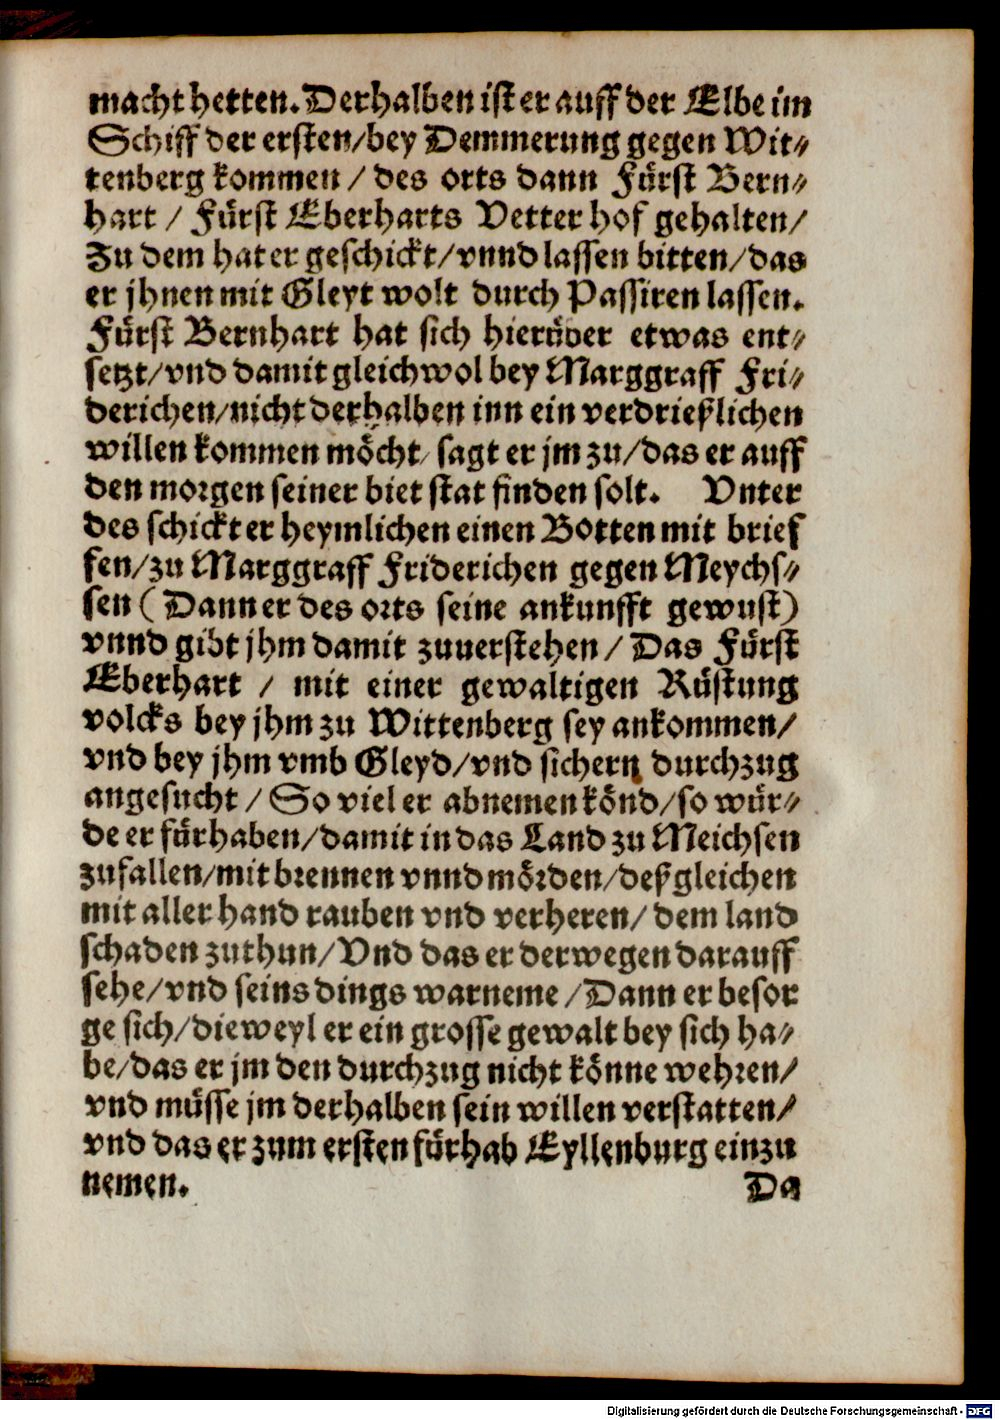 macht hetten. Derhalben ist er auff der Elbe im
Schiff der ersten/ bey Demmerung gegen Wit-
tenberg kommen / des orts dann Fürst Bern-
hart / Fürst Eberharts Vetter hof gehalten/
Zu dem hat er geschickt/ vnnd lassen bitten/ das
er jhnen mit Gleyt wolt durch Passiren lassen.
Fürst Bernhart hat sich hierüber etwas ent-
setzt/ vnd damit gleichwol bey Marggraff Fri-
derichen/ nicht derhalben inn ein verdrießlichen
willen kommen möcht/ sagt er jm zu/ das er auff
den morgen seiner biet stat finden solt. Vnter
des schickt er heymlichen einen Botten mit brief
fen/ zu Marggraff Friderichen gegen Meychs-
sen ( Dann er des orts seine ankunfft gewust)
vnnd gibt jhm damit zuuerstehen / Das Fürst
Eberhart / mit einer gewaltigen Rüstung
volcks bey jhm zu Wittenberg sey ankommen/
vnd bey jhm vmb Gleyd/ vnd sichern durchzug
angesucht / So viel er abnemen könd/ so wür-
de er fürhaben/ damit in das Land zu Meichsen
zufallen/ mit brennen vnnd mörden/ deß gleichen
mit aller hand rauben vnd verheren/ dem land
schaden zuthun/ Vnd das er derwegen darauff
sehe/ vnd seins dings warneme / Dann er besor
ge sich/ dieweyl er ein grosse gewalt bey sich ha-
be/ das er jm den durchzug nicht könne wehren/
vnd müsse jm derhalben sein willen verstatten/
vnd das er zum ersten fürhab Eyllenburg einzu
nemen. Da
Digitalisierung gefördert durch die Deutsche Forschungsgemeinschaft - DFG